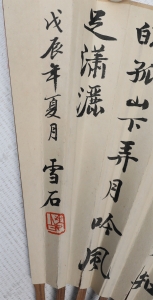 白孤山下弄月吟風
足瀟灑
戊辰年夏月 雪石